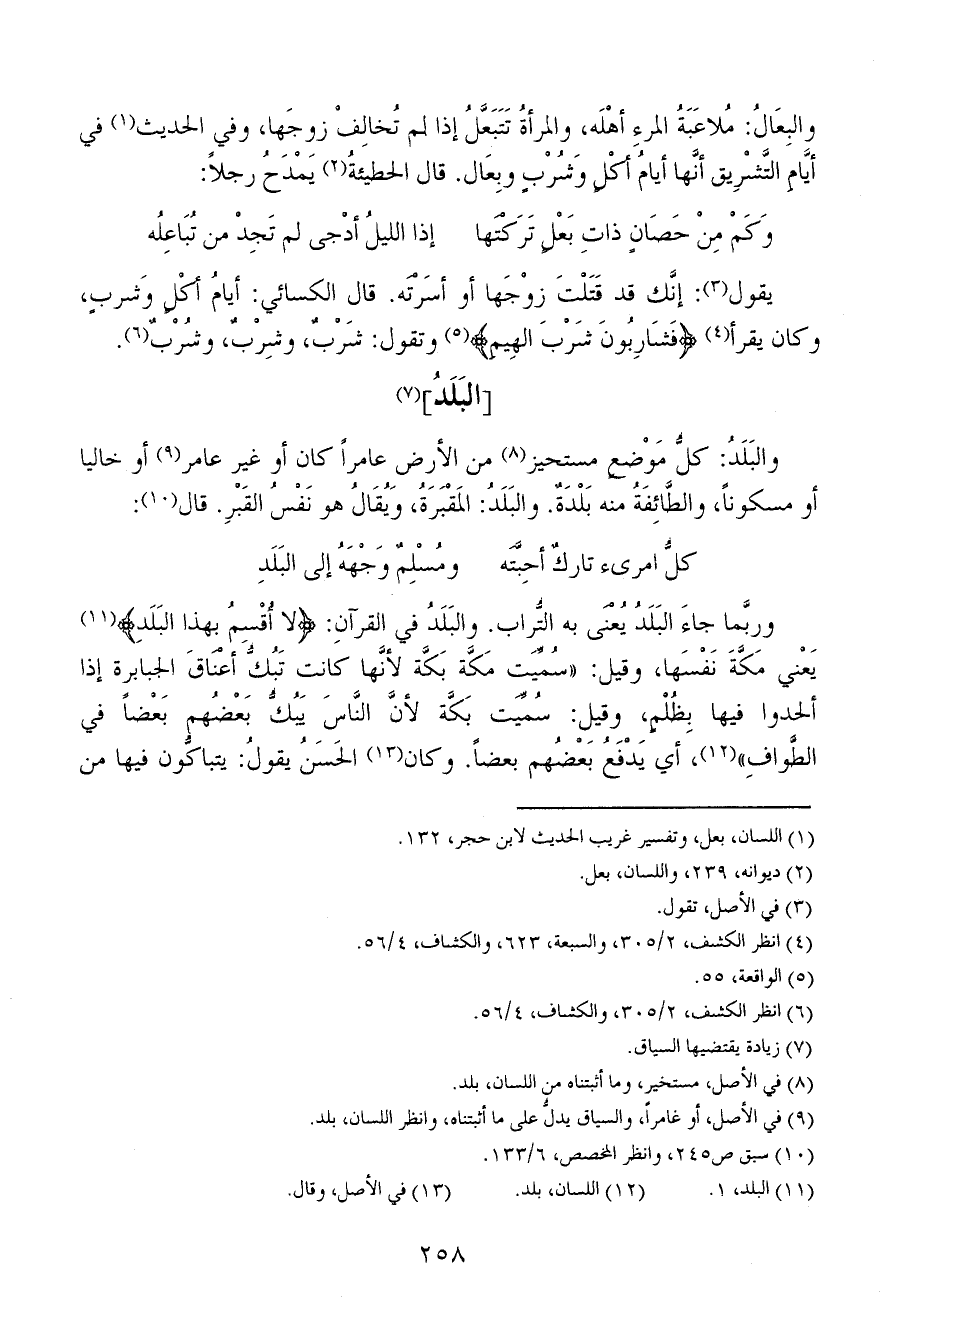 والبِعَالُ: مُلاعَبَةُ المرءِ أهْلَه، والمرأةُ تَتَبَعَّلُ إذا لم تُخالِفْ زوجَها، وفي الحديث(١) في
أيَّامِ التَّشْرِيق أنَّها أيامُ أكْلٍ وَشُرْبٍ وبِعَال. قال الحطيئةُ(٢) يَمْدَحُ رجلاً:
وَكَمْ مِنْ حَصَانٍ ذاتِ بَعْلٍ تَرَكْتَها إذا الليلُ أدْجى لم تَجِدْ من تُبَاعِلُه
يقول(٣): إنَّك قد قَتَلْتَ زوْجَها أو أسَرْتَه. قال الكسائي: أيامُ أكْلٍ وَشرب،
وكان يقرأ(٤) ﴿فَشَارِبُونَ شَرْبَ الهِيم﴾(٥) وتقول: شَرْبٌ، وشِرْبٌ، وشُرْبٌ(٦).
[البَلَدُ](٧)
والبَلَدُ: كلُّ مَوْضعٍ مستحيز(٨) من الأرض عامراً كان أو غير عامر(٩) أو خاليا
أو مسكوناً، والطَّائفَةُ منه بَلْدَةٌ. والبَلَدُ: المَقْبَرَةُ، ويَُقَالُ هو نَفْسُ القَبْرِ. قال(١٠):
كلُّ امرىء تاركٌ أحبَّتَه ومُسْلِمٌ وَجْهَهُ إلى البَلَدِ
وربَّما جاءَ البَلَدُ يُعْنَى به التُّراب. والبَلَدُ في القرآن: ﴿لا أُقْسِمُ بهذا البَلَدِ﴾(١١)
يَعْني مكَّةَ نَفْسَها، وقيل: «سمُيِّت مكَّة بَكَّة لأنَّها كانت تَبُكُّ أعْناقَ الجبابرة إذا
ألحدوا فيها بِظُلْمٍ، وقيل: سُمِّيَت بَكَّة لأنَّ النَّاسَ يَبُكُّ بَعْضُهم بَعْضاً في
الطَّوافِ»(١٢)، أي يَدْفَعُ بَعْضُهم بعضاً. وكان(١٣) الحَسَنُ يقولُ: يتباكُّون فيها من
(١) اللسان، بعل، وتفسير غريب الحديث لابن حجر، ١٣٢.
(٢) ديوانه، ٢٣٩، واللسان، بعل.
(٣) في الأصل، تقول.
(٤) انظر الكشف، ٣٠٥/٢، والسبعة، ٦٢٣، والكشاف، ٥٦/٤.
(٥) الواقعة، ٥٥.
(٦) انظر الكشف، ٣٠٥/٢، والكشاف، ٥٦/٤.
(٧) زيادة يقتضيها السياق.
(٨) في الأصل، مستخير، وما أثبتناه من اللسان، بلد.
(٩) في الأصل، أو غامراً، والسياق يدلُّ على ما أثبتناه، وانظر اللسان، بلد.
(١٠) سبق ص٢٤٥، وانظر المخصص، ١٣٣/٦.
(١١) البلد، ١. (١٢) اللسان، بلد. (١٣) في الأصل، وقال.
٢٥٨